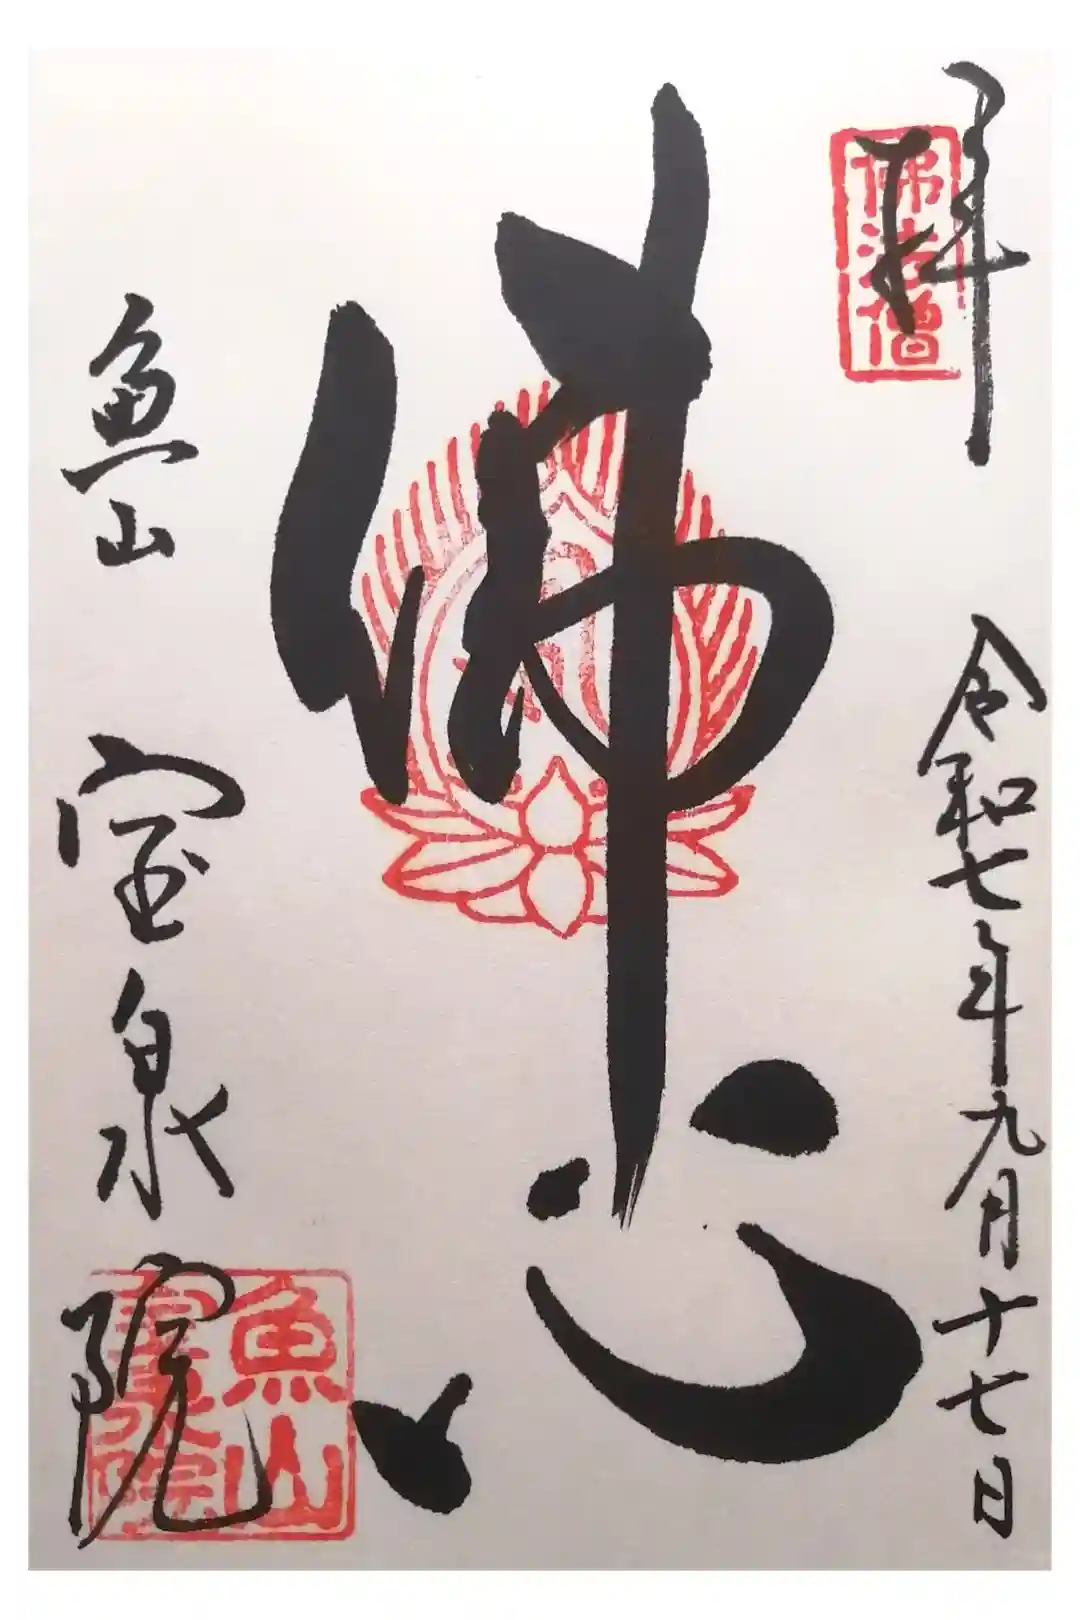 拝
佛法僧
令和七年九月十七日
佛心
魚山 宝泉院
魚山